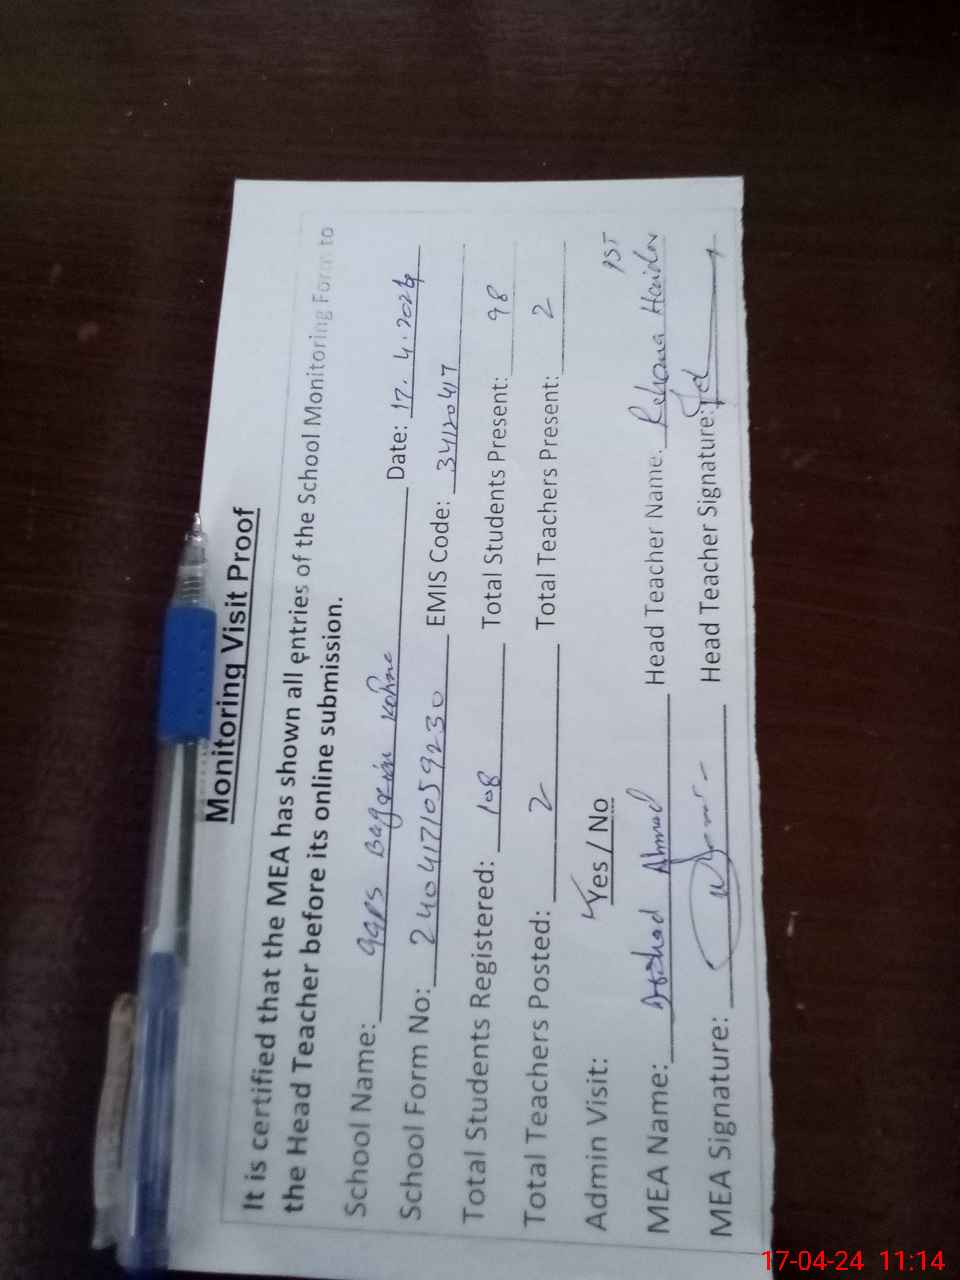 Monitoring Visit Proof
It is certified that the MEA has shown all entries of the School Monitoring Form to
the Head Teacher before its online submission.
School Name: GGPS Baggian Kohna Date: 17.4.2024
School Form No: 2404171059230 EMIS Code: 34120417
Total Students Registered: 108 Total Students Present: 98
Total Teachers Posted: 2 Total Teachers Present: 2
Admin Visit: Yes / No PST
MEA Name: Arshad Ahmad Head Teacher Name: Rehana Haider
MEA Signature: Head Teacher Signature:
17-04-24 11:14